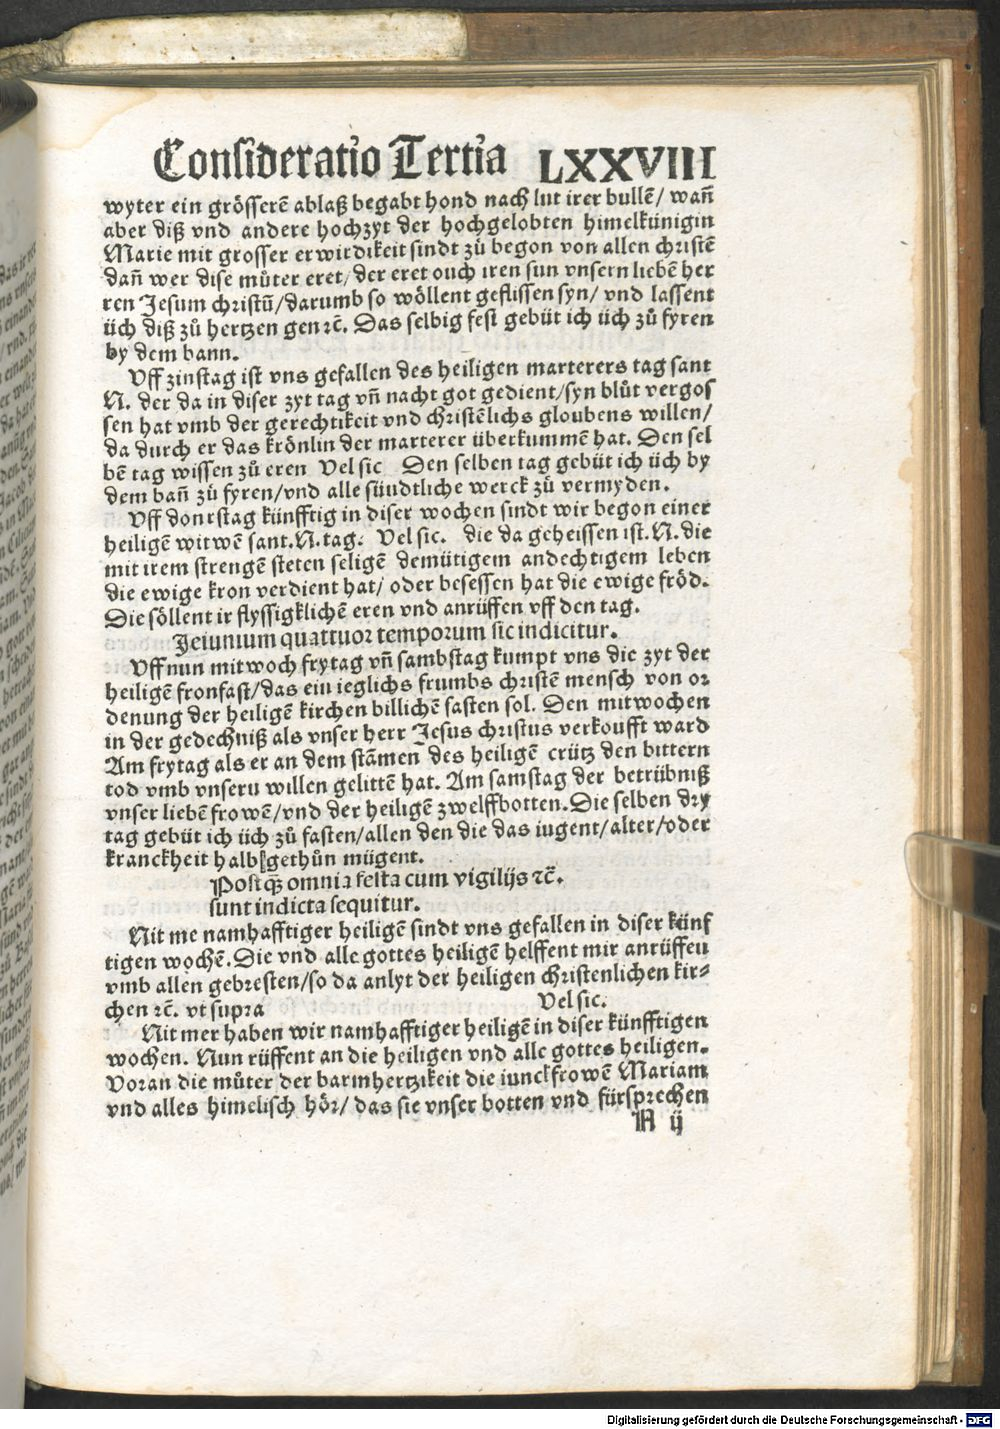 Consideratio Tertia LXXVIII
wyter ein grösserē ablaß begabt hond nach lut irer bullē/ wañ
aber diß vnd andere hochzyt der hochgelobten himelkünigin
Marie mit grosser erwirdikeit sindt zů begon von allen christē
dañ wer dise můter eret/ der eret ouch iren sun vnsern liebē her
ren Jesum christū/ darumb so wöllent geflissen syn/ vnd lassent
üch diß zů hertzen gen ꝛc̄. Das selbig fest gebüt ich üch zů fyren
by dem bann.
Vff zinstag ist vns gefallen des heiligen marterers tag sant
N. der da in diser zyt tag vñ nacht got gedient/ syn blůt vergos
sen hat vmb der gerechtikeit vnd christēlichs gloubens willen/
da durch er das krönlin der marterer überkummē hat. Den sel
bē tag wissen zů eren Vel sic Den selben tag gebüt ich üch by
dem bañ zů fyren/ vnd alle sündtliche werck zů vermyden.
Vff donrstag künfftig in diser wochen sindt wir begon einer
heiligē witwē sant. N. tag. Vel sic. die da geheissen ist. N. die
mit irem strengē steten seligē demütigem andechtigem leben
die ewige kron verdient hat/ oder besessen hat die ewige fröd.
Die söllent ir flyssigklichē eren vnd anrüffen vff den tag.
Jeiunium quattuor temporum sic indicitur.
Vff nun mitwoch frytag vñ sambstag kumpt vns die zyt der
heiligē fronfast/ das ein ieglichs frumbs christē mensch von or
denung der heiligē kirchen billichē fasten sol. Den mitwochen
in der gedechniß als vnser herr Jesus christus verkoufft ward
Am frytag als er an dem stāmen des heiligē crütz den bittern
tod vmb vnseru willen gelittē hat. Am samstag der betrübniß
vnser liebē frowē/ vnd der heiligē zwelffbotten. Die selben dry
tag gebüt ich üch zů fasten/ allen den die das iugent/ alter/ oder
kranckheit halb gethůn mügent.
Postq̄ omnia festa cum vigilijs ꝛc̄.
sunt indicta sequitur.
Nit me namhafftiger heiligē sindt vns gefallen in diser künf
tigen wochē. Die vnd alle gottes heiligē helffent mir anrüffen
vmb allen gebresten/ so da anlyt der heiligen christenlichen kir⸗
chen ꝛc̄. vt supra Vel sic.
Nit mer haben wir namhafftiger heiligē in diser künfftigen
wochen. Nun rüffent an die heiligen vnd alle gottes heiligen.
Voran die můter der barmhertzikeit die iunckfrowē Mariam
vnd alles himelisch hör/ das sie vnser botten vnd fürsprechen
N ij
Digitalisierung gefördert durch die Deutsche Forschungsgemeinschaft - DFG